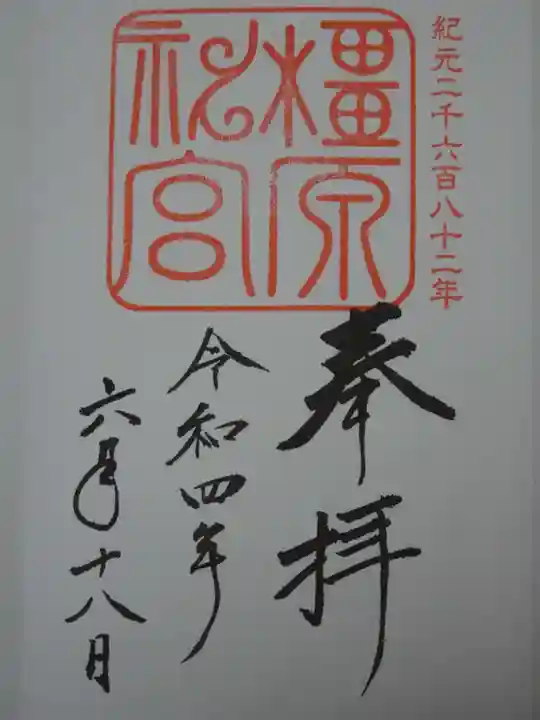 紀元二千六百八十二年
橿原
神宮
奉拝
令和四年
六月十八日